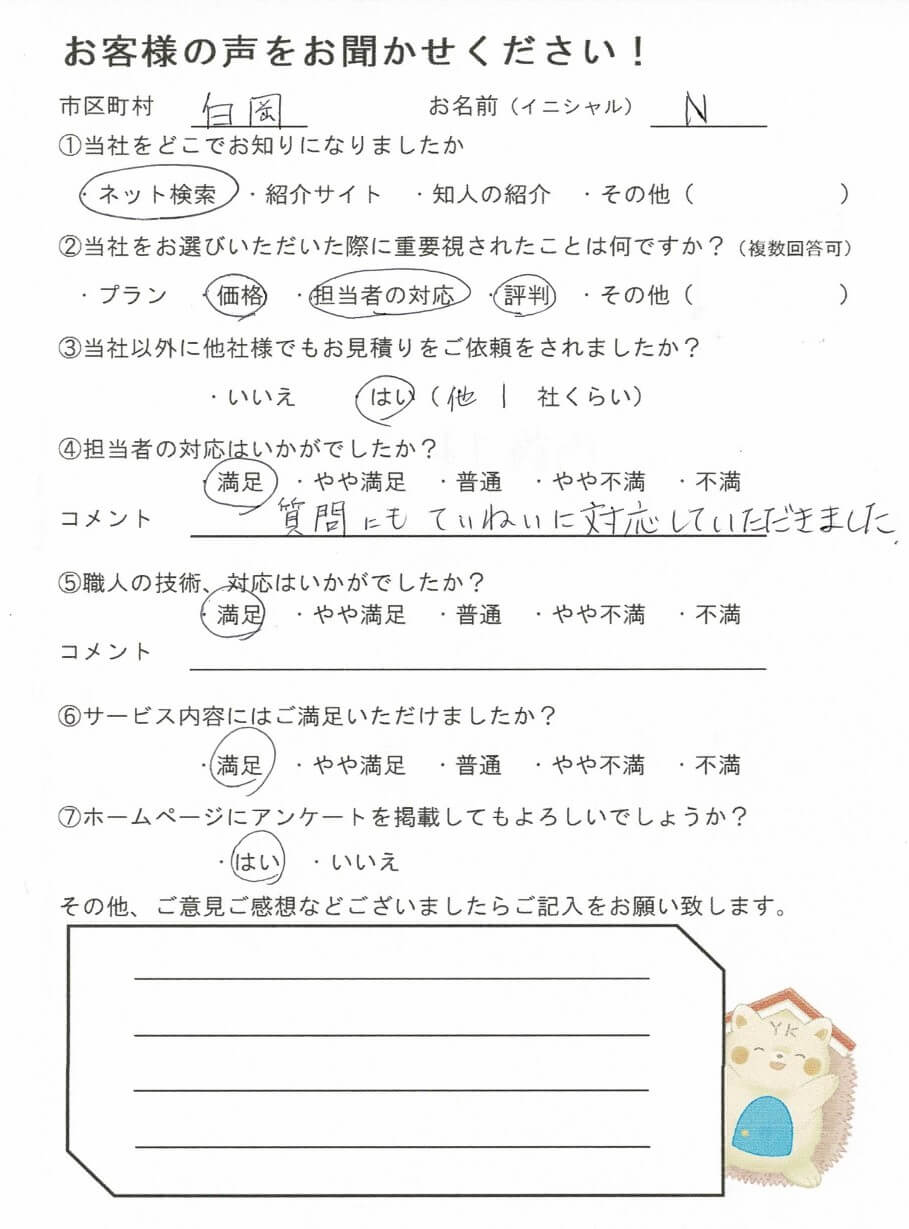 お客様の声をお聞かせください！
市区町村 白岡 お名前（イニシャル） N
①当社をどこでお知りになりましたか
・ネット検索 ・紹介サイト ・知人の紹介 ・その他（ ）
②当社をお選びいただいた際に重要視されたことは何ですか？（複数回答可）
・プラン ・価格 ・担当者の対応 ・評判 ・その他（ ）
③当社以外に他社様でもお見積りをご依頼をされましたか？
・いいえ ・はい（他 1 社くらい）
④担当者の対応はいかがでしたか？
・満足 ・やや満足 ・普通 ・やや不満 ・不満
コメント 質問にもていねいに対応していただきました。
⑤職人の技術、対応はいかがでしたか？
・満足 ・やや満足 ・普通 ・やや不満 ・不満
コメント
⑥サービス内容にはご満足いただけましたか？
・満足 ・やや満足 ・普通 ・やや不満 ・不満
⑦ホームページにアンケートを掲載してもよろしいでしょうか？
・はい ・いいえ
その他、ご意見ご感想などございましたらご記入をお願い致します。
YK